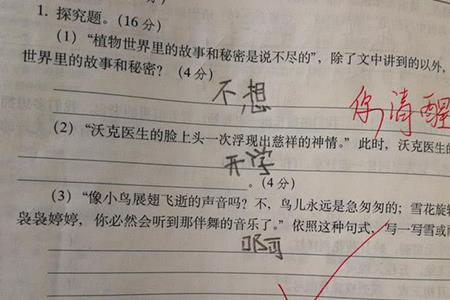 1. 探究题。(16 分)
(1) “植物世界里的故事和秘密是说不尽的”, 除了文中讲到的以外,
世界里的故事和秘密? (4 分)
不想
你清醒
(2) “沃克医生的脸上头一次浮现出慈祥的神情。” 此时, 沃克医生的
开学
。(4 分)
(3) “像小鸟展翅飞逝的声音吗? 不, 鸟儿永远是急匆匆的; 雪花旋
袅袅婷婷, 你必然会听到那伴舞的音乐了。” 依照这种句式, 写一写雪或